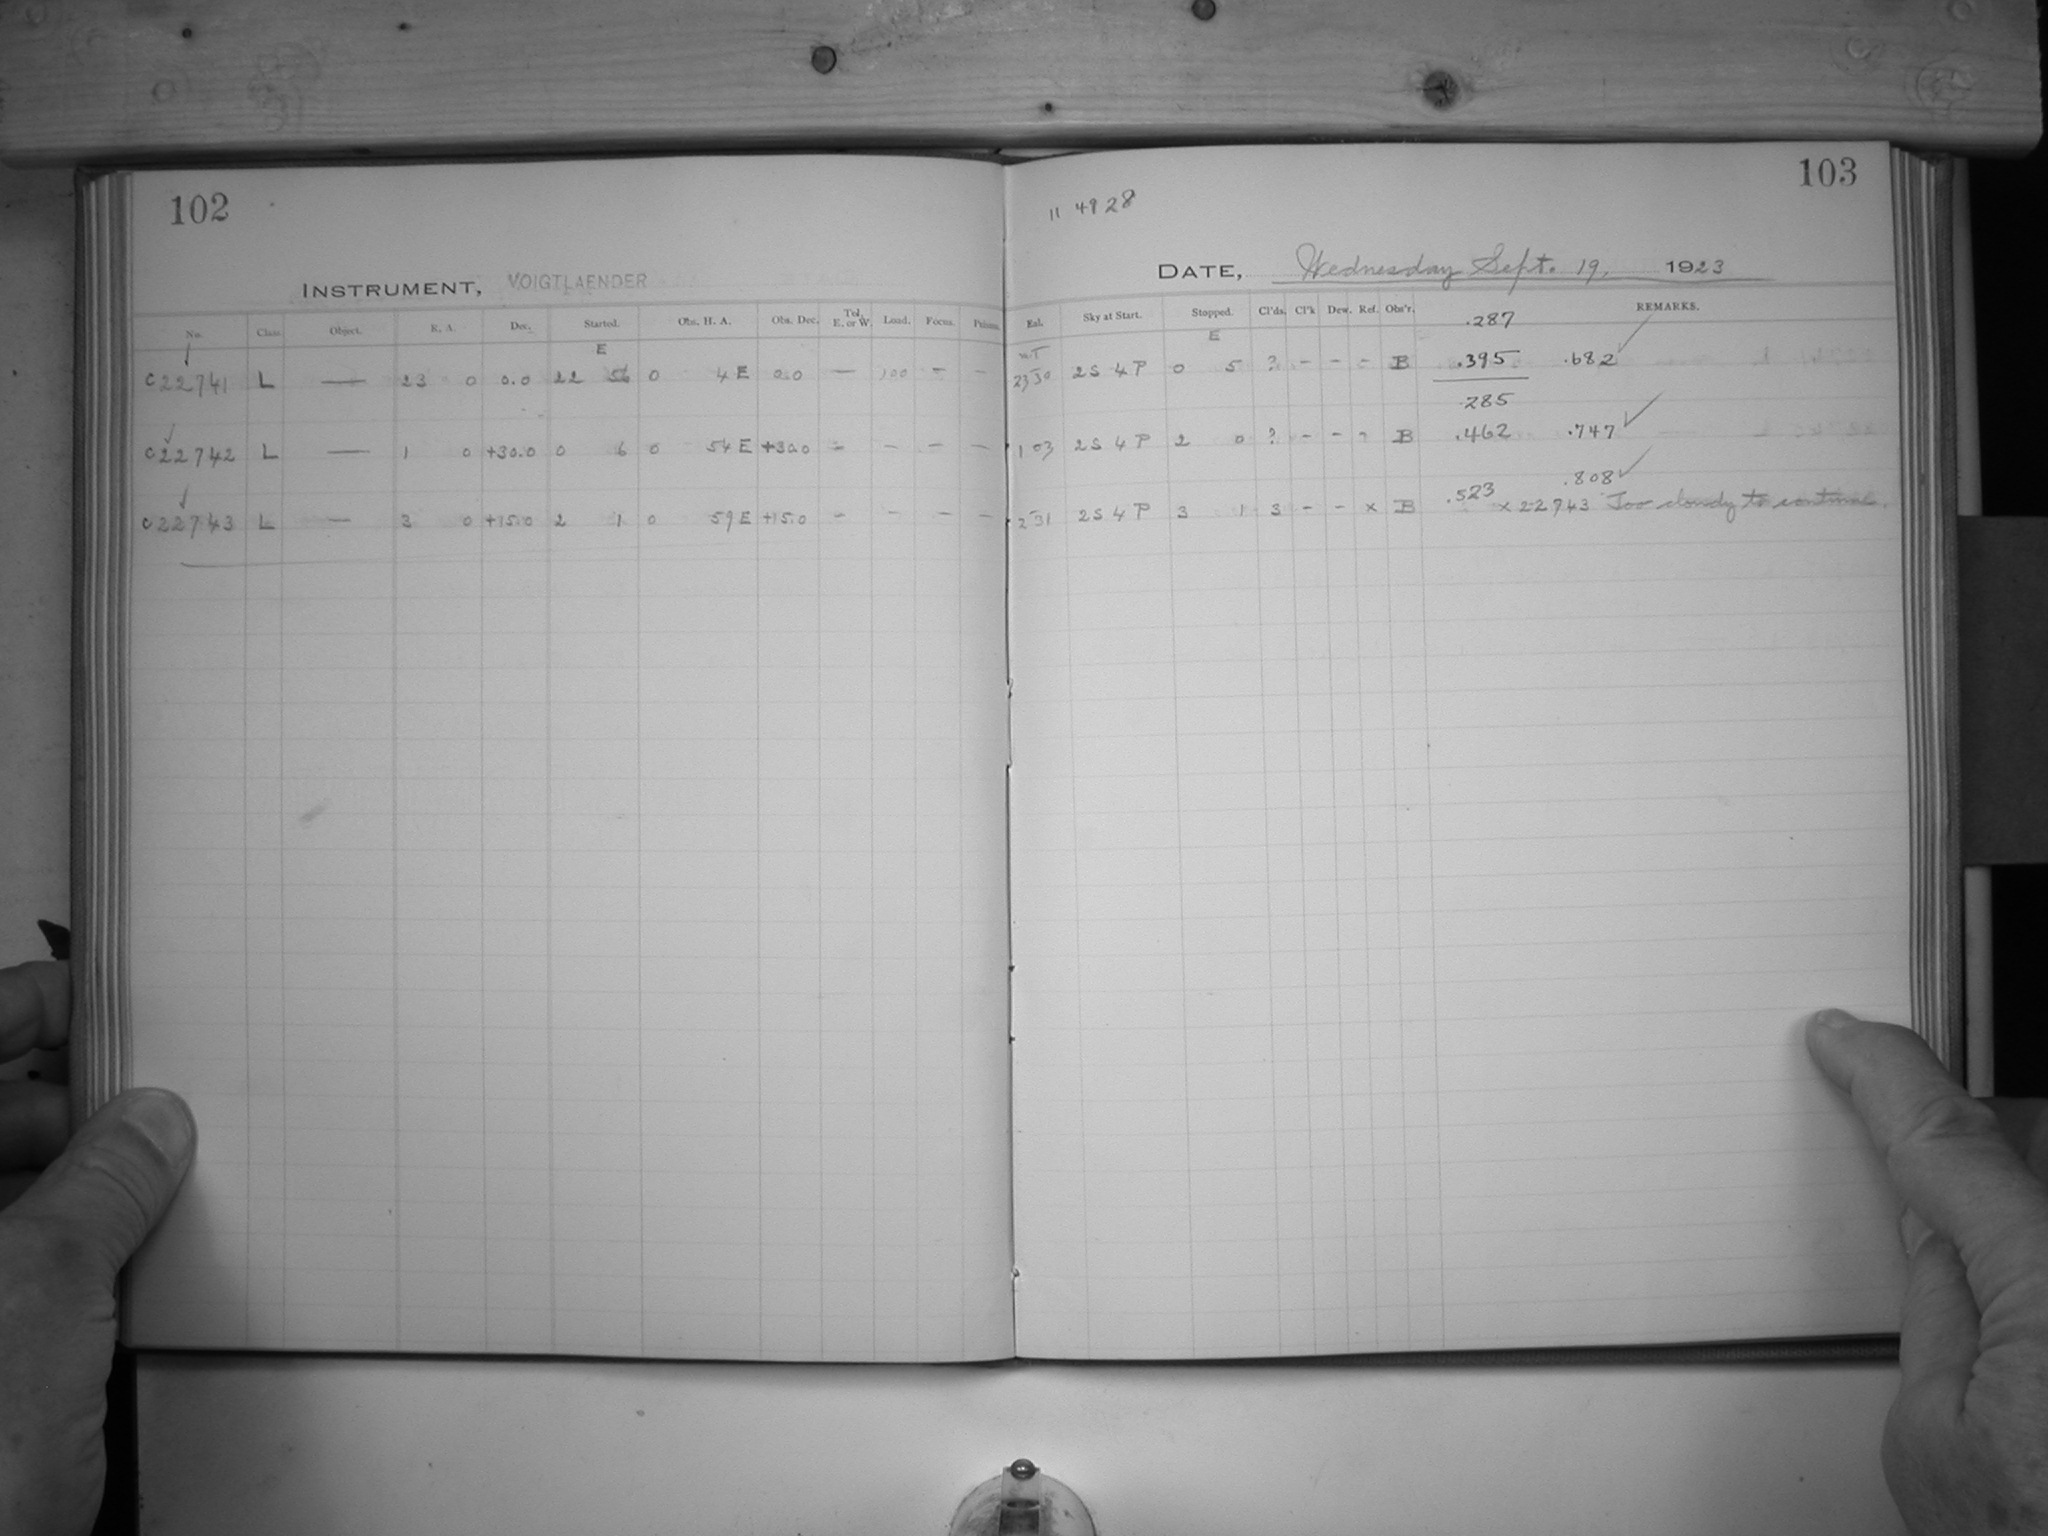 102
INSTRUMENT, VOIGTLAENDER
No. Class. Object. R. A. Dec. Started. Obs. H. A. Obs. Dec. Tel. E. or W. Load. Focus.
E
C22741 L — 23 0 0.0 22 56 0 4 E 0.0 — 100 - -
C22742 L — 1 0 +30.0 0 6 0 54 E +30.0 - - - -
C22743 L — 3 0 +15.0 2 1 0 59 E +15.0 - - - -
103
11 4928
DATE, Wednesday Sept. 19, 1923
Sky at Start. Stopped. Cl'ds. Cl'k Dew. Ref. Obs'r. REMARKS.
E .287
2S 4P 0 5 ? - - - B .395 .682 ✓
.285
1 03 2S 4P 2 0 ? - - - B .462 .747 ✓
.808 ✓
2 31 2S 4P 3 1 3 - - x B .523 x 22743 Too cloudy to continue.